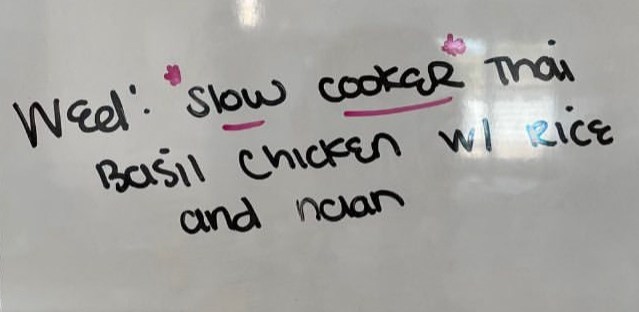 Wed: *Slow cooker* Thai
Basil chicken w/ Rice
and naan